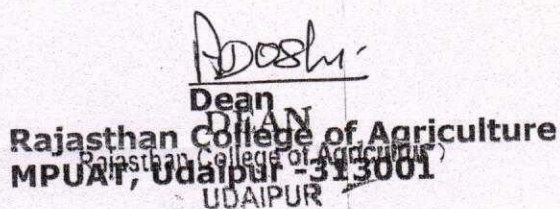 ADoshi
Dean
DEAN
Rajasthan College of Agriculture
Rajasthan College of Agriculture)
MPUAT, Udaipur -313001
UDAIPUR